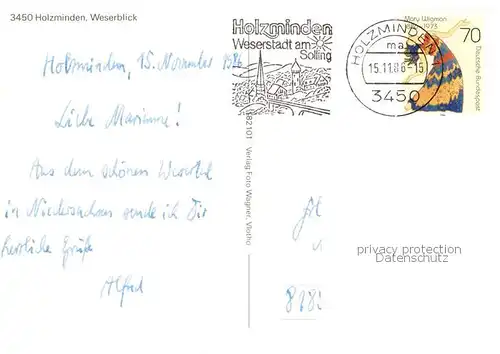 3450 Holzminden, Weserblick
Holzminden, 15. November 1986
Liebe Marianne!
Aus dem schönen Wesertal
in Niedersachsen sende ich Dir
herzliche Grüße
Alfred
Holzminden
Weserstadt am
Solling
HOLZMINDEN 1
ma
15.11.86-15
3450
Mary Wigman
1973
70
Deutsche Bundespost
Verlag Foto Wagner, Vlotho
privacy protection
Datenschutz